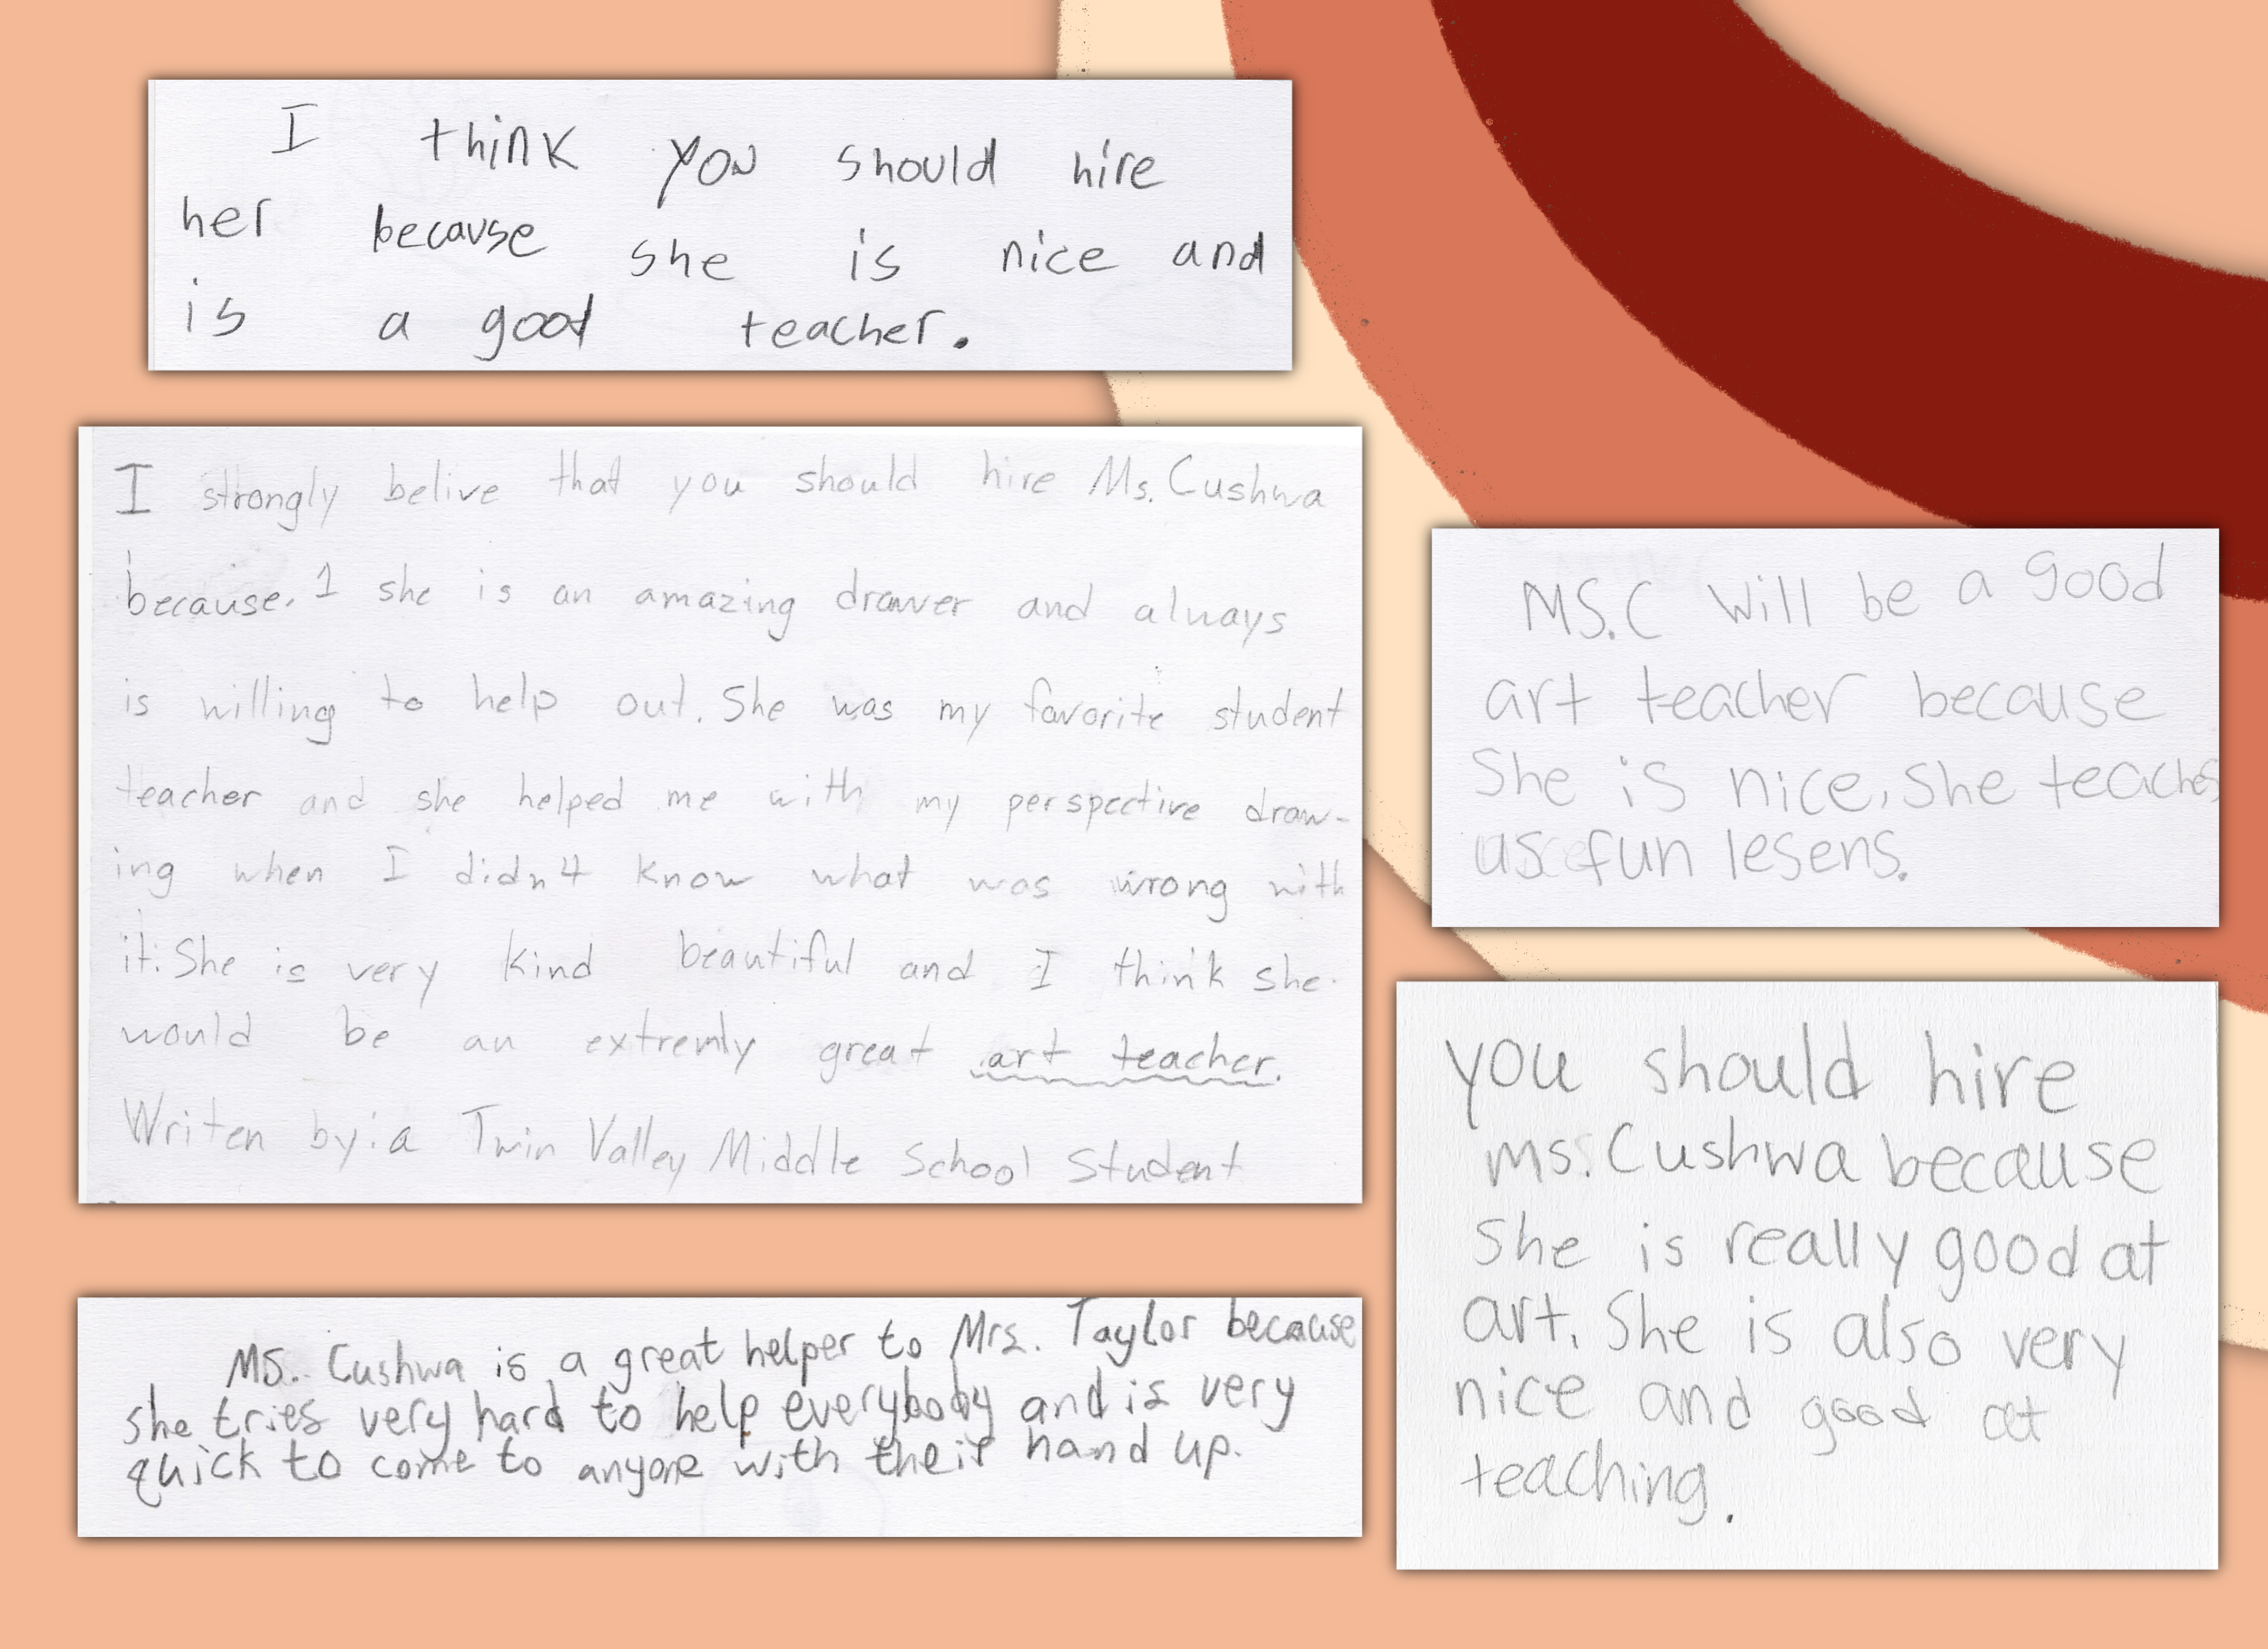 I think you should hire
her because she is nice and
is a good teacher.
I strongly belive that you should hire Ms. Cushwa
because. 1 she is an amazing drawer and always
is willing to help out. She was my favorite student
teacher and she helped me with my perspective draw-
ing when I didn't know what was wrong with
it. She is very kind beautiful and I think she
would be an extremly great art teacher.
Writen by: a Twin Valley Middle School Student
Ms. Cushwa is a great helper to Mrs. Taylor because
she tries very hard to help everybody and is very
quick to come to anyone with their hand up.
MS.C will be a good
art teacher because
She is nice, She teaches
us fun lesens.
you should hire
ms. Cushwa because
She is really good at
art. She is also very
nice and good at
teaching.